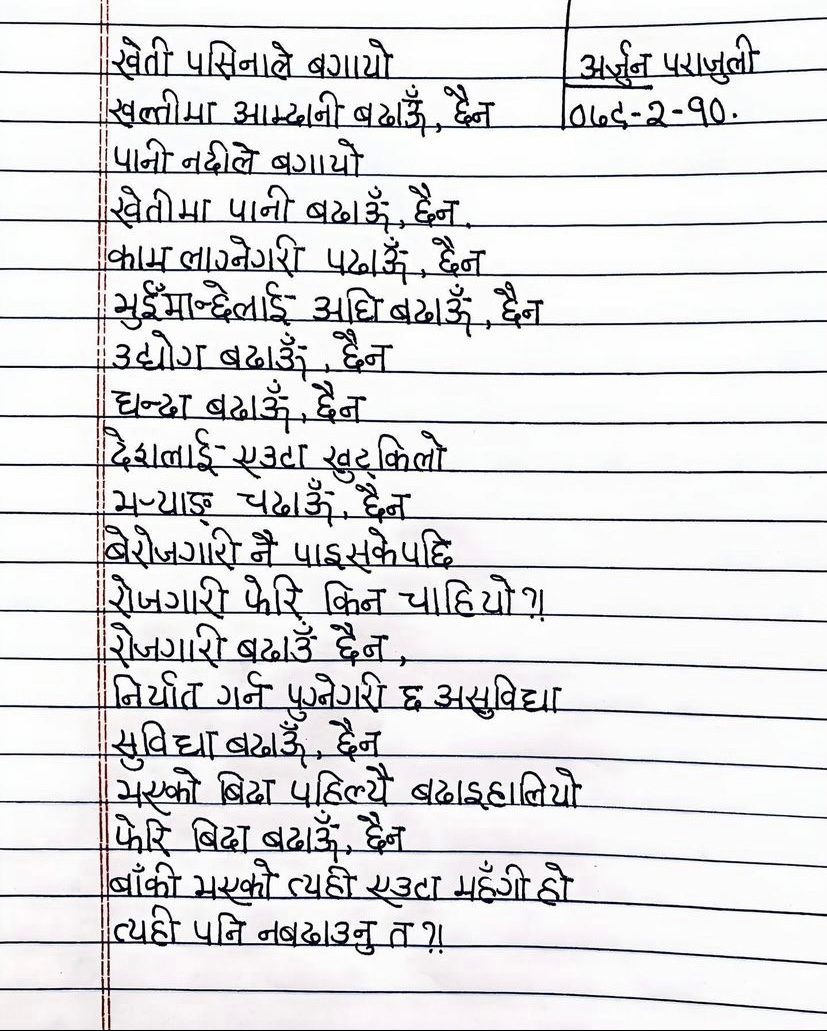 खेती पसिनाले बगायो
खल्तीमा आम्दानी बढाऊँ, छैन
पानी नदीले बगायो
खेतीमा पानी बढाऊँ, छैन.
काम लाग्नेगरी पढाऊँ, छैन
भुइँमान्छेलाई अघि बढाऊँ, छैन
उद्योग बढाऊँ, छैन
धन्दा बढाऊँ, छैन
देशलाई एउटा खुट्किलो
भर्‍याङ् चढाऊँ, छैन
बेरोजगारी नै पाइसकेपछि
रोजगारी फेरि किन चाहियो?!
रोजगारी बढाउँ छैन,
निर्यात गर्न पुग्नेगरी छ असुविधा
सुविधा बढाऊँ, छैन
भएको बिदा पहिल्यै बढाइहालियो
फेरि बिदा बढाऊँ, छैन
बाँकी भएको त्यही एउटा महँगी हो
त्यही पनि नबढाउनु त?!
अर्जुन पराजुली
०७९-२-१०.